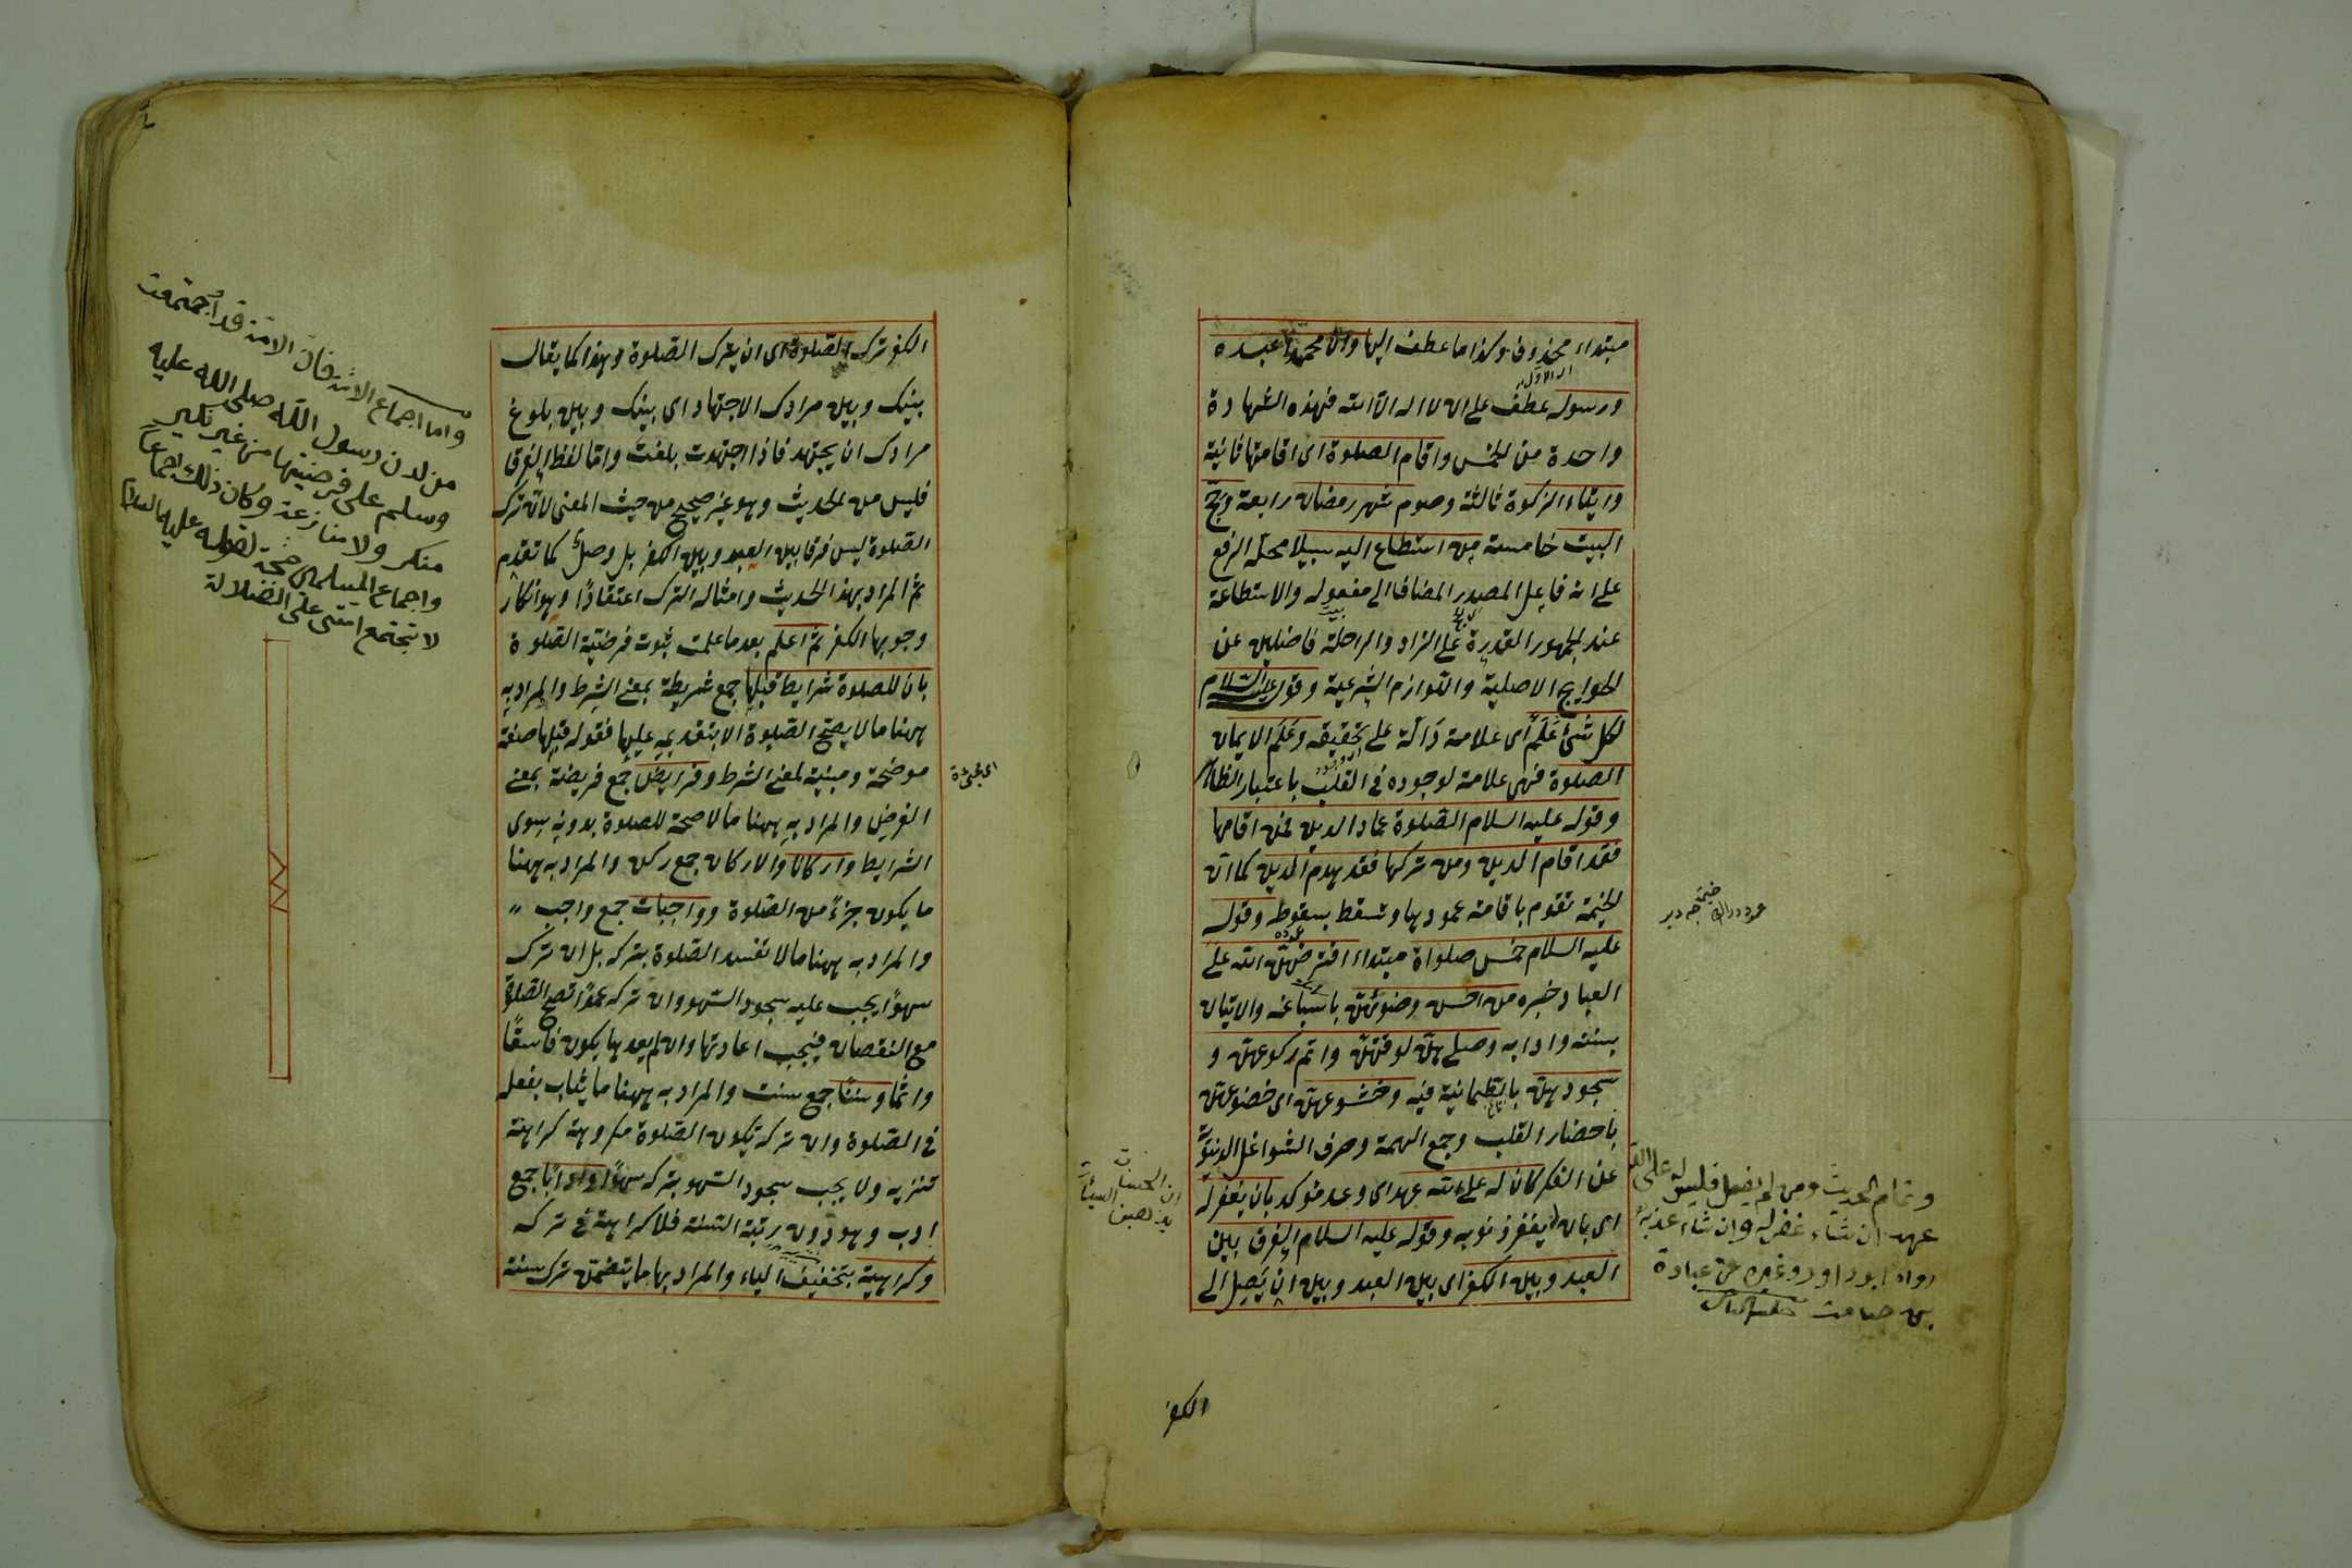 مبتداء محذوف وكذا ما عطف اليها وان محمدا عبده
ورسوله عطف على ان لا اله الا الله فهذه الشهادة
واحدة من الخمس واقام الصلوة اى اقامتها ثانية
وايتاء الزكوة ثالثة وصوم شهر رمضان رابعة وحج
البيت خامسة من استطاع اليه سبيلا محله الرفع
على انه فاعل المصدر المضاف الى مفعوله والاستطاعة
عند الجمهور القدرة على الزاد والراحلة فاضلين عن
الحوايج الاصلية واللوازم الشرعية وقوله عليه السلام
لكل شئ علم اى علامة دالة على تحقيقه وعلم الايمان
الصلوة فهى علامة لوجوده فى القلب باعتبار الظاهر
وقوله عليه السلام الصلوة عماد الدين فمن اقامها
فقد اقام الدين ومن تركها فقد هدم الدين كما ان
الخيمة تقوم باقامة عمودها وتسقط بسقوطه وقوله
عليه السلام خمس صلواة مبتداء افترضهن الله على
العباد خبره من احسن وضوئهن باسباغه والاتيان
بسننه وادابه وصلى هن لوقتهن واتم ركوعهن و
سجودهن بالطمانية فيه وخشوعهن اى خضوعهن
باحضار القلب وجمع الهمة وصرف الشواغل الدنيوية
عن الفكر كان له على الله عهد اى وعد مؤكد بان يغفر له
اى بان يغفر ذنوبه وقوله عليه السلام الفرق بين
العبد وبين الكفر اى بين العبد وبين ان يصل الى
الكفر
ان الحسنات
يذهبن السيئات
وتمام الحديث ومن لم يفعل فليس له على الله
عهد ان شاء غفر له وان شاء عذبه
رواه ابو داود وغيره عن عبادة
بن صامت
الكفر ترك الصلوة اى ان يترك الصلوة وهذا كما يقال
بينك وبين مرادك الاجتهاد اى بينك وبين بلوغ
مرادك ان يجتهد فاذا اجتهدت بلغت واما لفظ الفرق
فليس من الحديث وهو غير صحيح من حيث المعنى لان ترك
الصلوة ليس فرقا بين العبد وبين الكفر بل وصل كما تقدم
ثم المراد بهذا الحديث وامثاله الترك اعتقادا وهو انكار
وجوبها الكفر ثم اعلم بعد ما علمت ثبوت فرضية الصلوة
بان للصلوة شرايط قبلها جمع شريطة بمعنى الشرط والمراد به
ههنا ما لا يصح الصلوة الا بتقديمه عليها فقوله قبلها صفة
موضحة ومبينة لمعنى الشرط وفرايض جمع فريضة بمعنى
الفرض والمراد به ههنا ما لا صحة للصلوة بدونه سوى
الشرايط واركانا والاركان جمع ركن والمراد به ههنا
ما يكون جزءً من الصلوة وواجبات جمع واجب
والمراد به ههنا ما لا تفسد الصلوة بتركه بل ان ترك
سهوا يجب عليه سجود السهو وان تركه عمدا تصح الصلوة
مع النقصان فيجب اعادتها وان لم يعدها يكون فاسقا
واثما وسننا جمع سنت والمراد به ههنا ما يثاب بفعله
فى الصلوة وان تركه تكون الصلوة مكروهة كراهة
تنزيه ولا يجب سجود السهو بتركه سهوا وادابا جمع
ادب وهو دون رتبة السنة فلا كراهة فى تركه
وكراهية بتخفيف الياء والمراد بها ما يتضمن ترك سنة
واما اجماع الامة فان الامة قد اجتمعت
من لدن رسول الله صلى الله عليه
وسلم على فرضيتها من غير نكير
منكر ولا منازعة وكان ذلك اجماعا
واجماع المسلمين حجة لقوله عليه السلام
لا تجتمع امتى على الضلالة